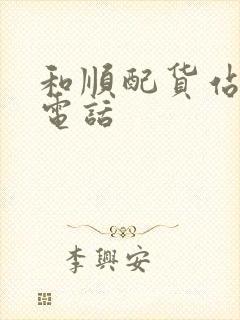 和順配货佔
電話
李興安